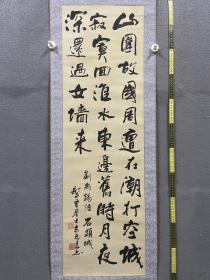 山圍故國周遭在潮打空城
寂寞回淮水東邊舊時月夜
深還過女墻來
劉禹錫詩 石頭城